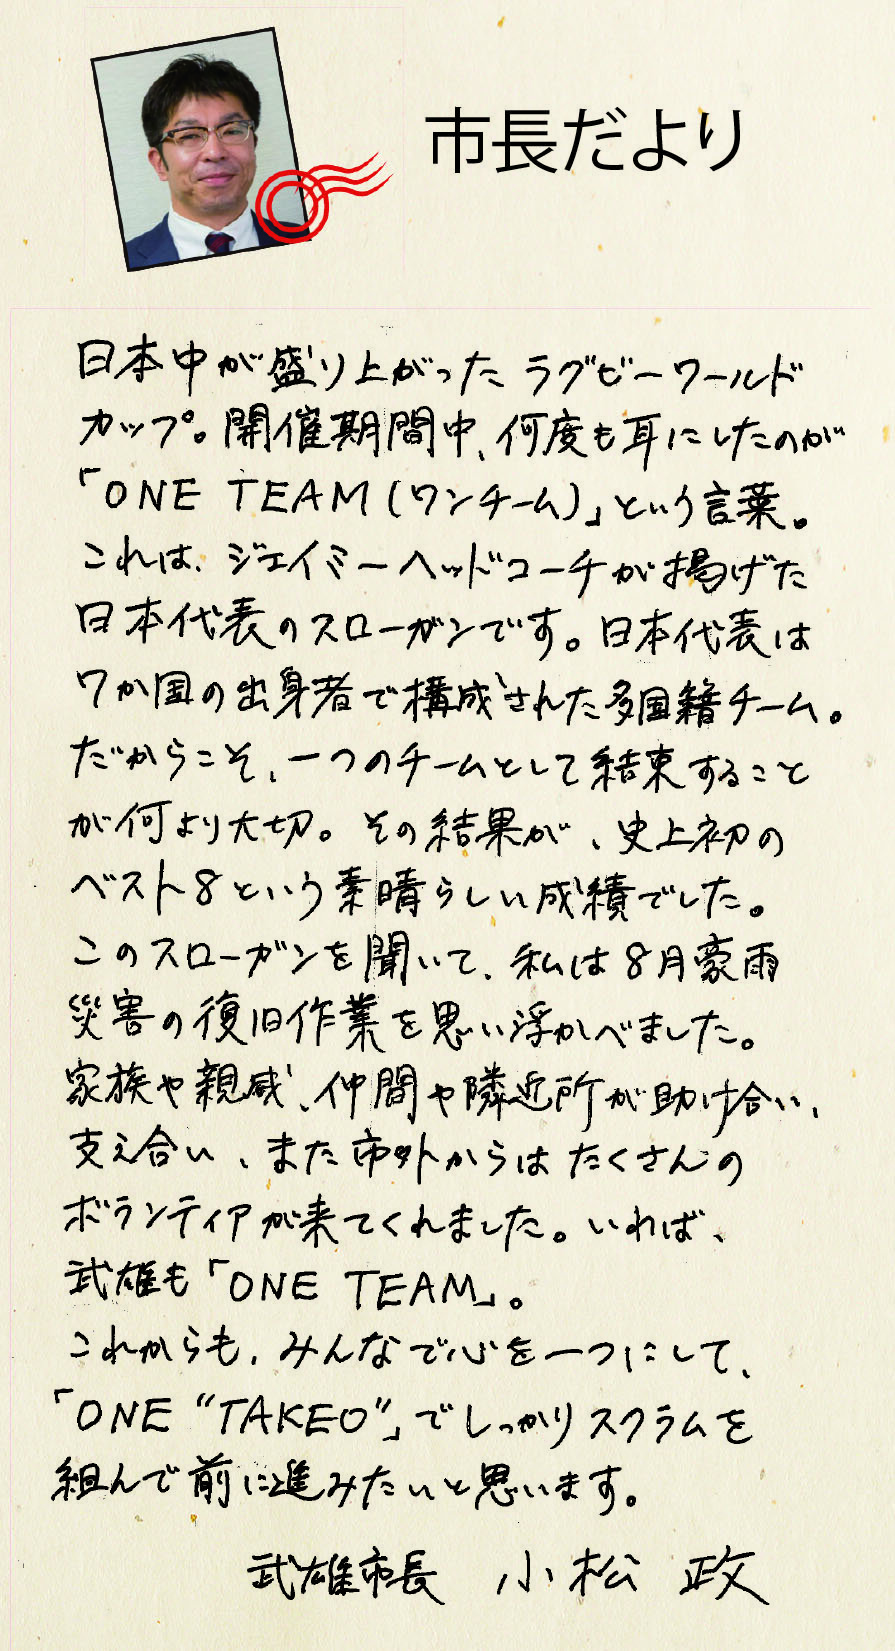 市長だより
日本中が盛り上がったラグビーワールド
カップ。開催期間中、何度も耳にしたのが
「ONE TEAM(ワンチーム)」という言葉。
これは、ジェイミーヘッドコーチが掲げた
日本代表のスローガンです。日本代表は
7か国の出身者で構成された多国籍チーム。
だからこそ、一つのチームとして結束すること
が何より大切。その結果が、史上初の
ベスト8という素晴らしい成績でした。
このスローガンを聞いて、私は8月豪雨
災害の復旧作業を思い浮かべました。
家族や親戚、仲間や隣近所が助け合い、
支え合い、また市外からはたくさんの
ボランティアが来てくれました。いわば、
武雄も「ONE TEAM」。
これからも、みんなで心を一つにして、
「ONE “TAKEO”」でしっかりスクラムを
組んで前に進みたいと思います。
武雄市長 小松 政